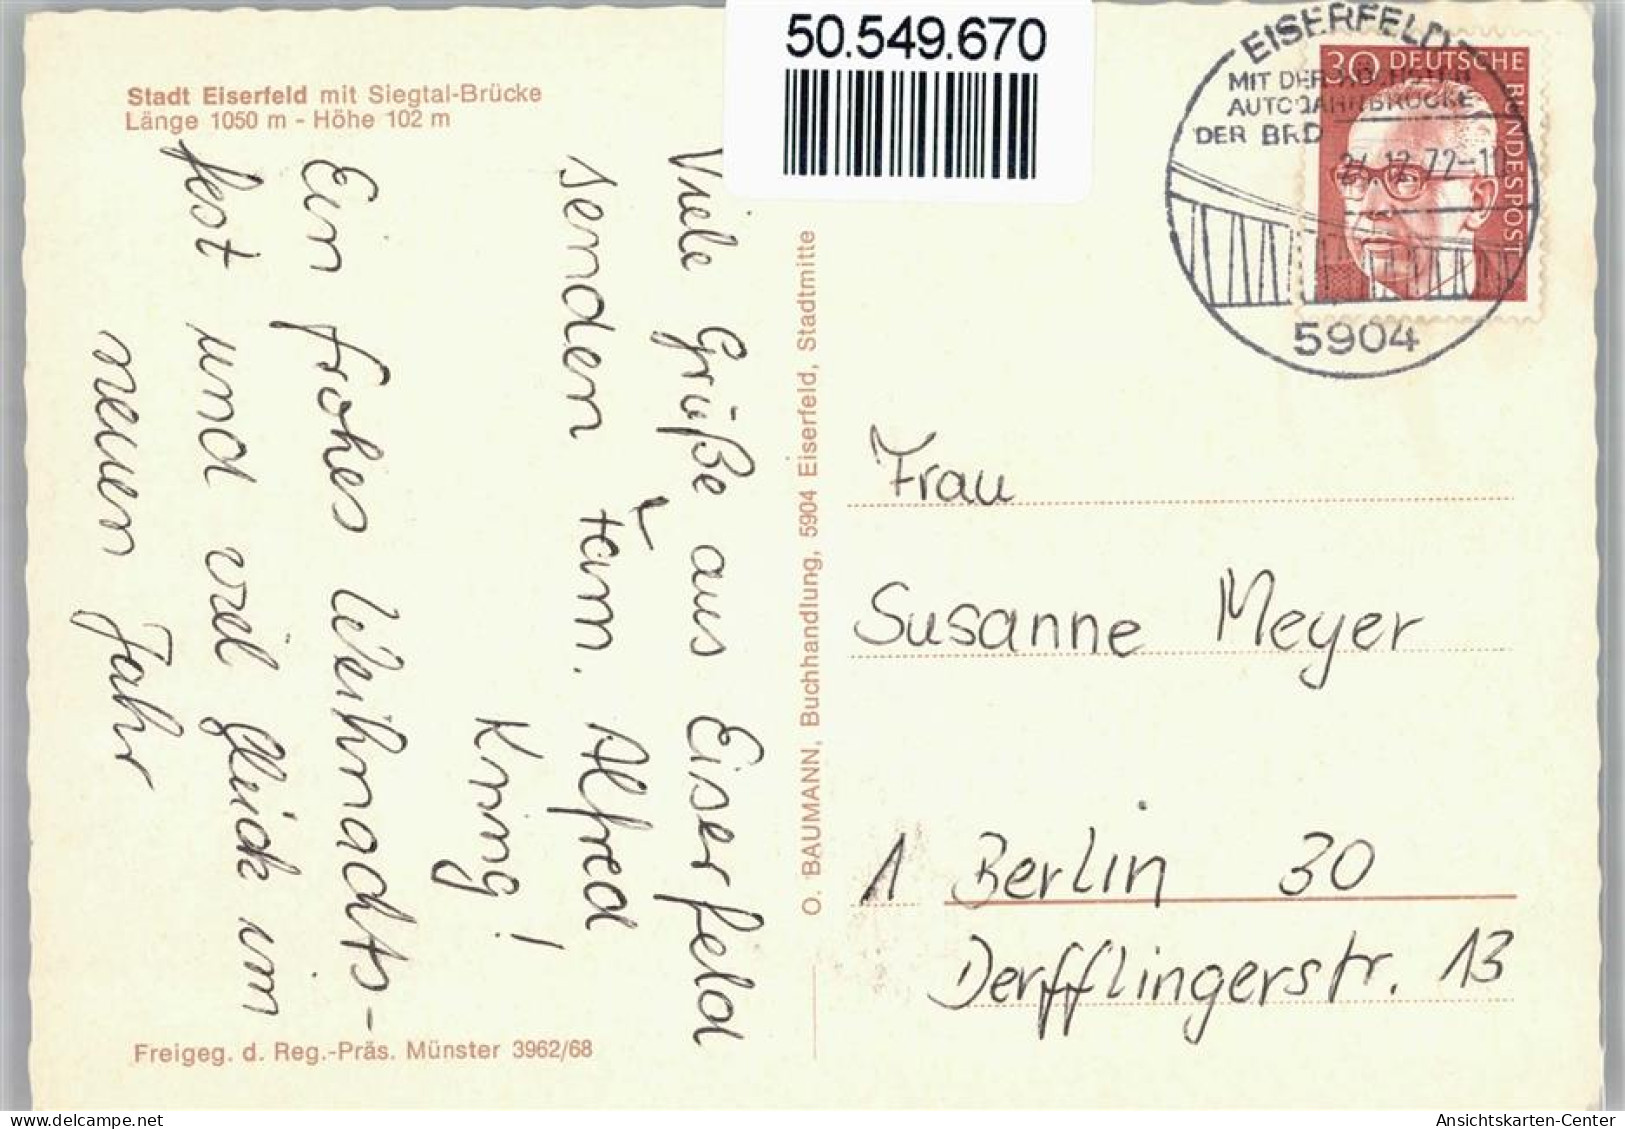 50.549.670
Stadt Eiserfeld mit Siegtal-Brücke
Länge 1050 m - Höhe 102 m
EISERFELD
MIT DER HÖCHSTEN
AUTOBAHNBRÜCKE
DER BRD
24.12.72-10
5904
30 DEUTSCHE
BUNDESPOST
Ein frohes Weihnachts-
fest und viel Glück im
neuen Jahr
Viele Grüße aus Eiserfeld
senden Fam. Alfred
Kring!
O. BAUMANN, Buchhandlung, 5904 Eiserfeld, Stadtmitte
Frau
Susanne Meyer
1 Berlin 30
Derfflingerstr. 13
Freigeg. d. Reg.-Präs. Münster 3962/68
delcampe.net
Ansichtskarten-Center